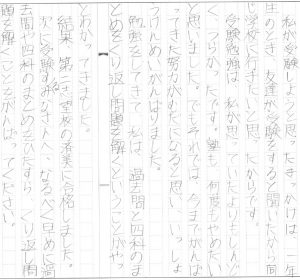 私が受験しようと思ったきっかけは、二年
生のとき、友達が受験をすると聞いたから同
じ学校に行きたいと思ったからです。
受験勉強は、私が思っていたよりもしんど
く、つらかったです。塾も、何度もやめたい
と思いました。でもそれでは、今までがんば
ってきた努力がむだになると思い、いっしょ
うけんめいがんばりました。
勉強をしてきて、私は、過去問と四科のま
とめをくり返し問題を解くということがやっ
とわかってきました。
結果、第二志望校の済美に合格しました。
次に受験するみなさんへ、なるべく早めに過
去問や四科のまとめをひたすら、くり返し問
題を解くことをがんばってください。